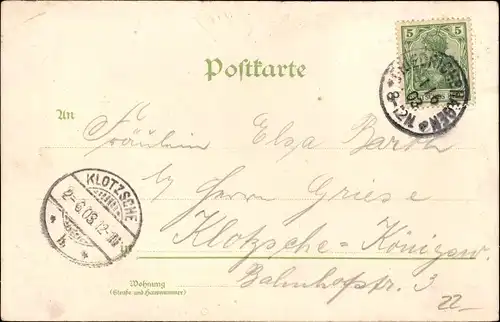 5
Postkarte
8-12N
An
Fräulein Elsa Barth
KLOTZSCHE
b/ Herrn Griese
2-6.03.12-
* b. *
Klotzsche-Königsw.
Wohnung
(Straße und Hausnummer)
Bahnhofstr. 3
22.-